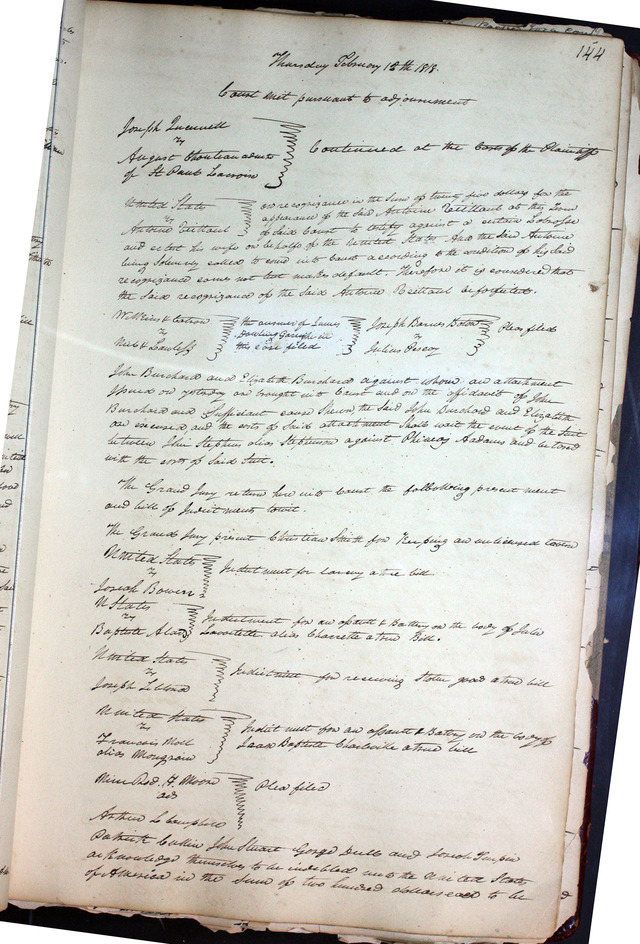 144
Thursday February 12th 1818.
Court met pursuant to adjournment
Joseph
vs
August Chouteau admr
of St Paul Lacroix
Continued at the Costs of the Plaintiff
United States
vs
Antoine
on recognizance in the sum of twenty five dollars for the
appearance of the said Antoine at this Term
of said Court to testify against a certain
and his wife on behalf of the United States. And the said Antoine
being solemnly called to come into Court according to the condition of his said
recognizance comes not but makes default. Therefore it is considered that
the said recognizance of the said Antoine be forfeited.
Wilkins &
vs
& Lawless
the answer of James
in
this case filed
Joseph Barnes
vs
Julius
Plea filed
John Burchard and Elizabeth Burchard against whom an attachment
issued on yesterday are brought into Court and on the affidavit of John
Burchard and Sufficient cause Shewn the said John Burchard and Elizabeth
are excused and the costs of said attachment shall wait the event of the Suit
between John Stephens alias Stephenson against Adams and be taxed
with the costs of said Suit.
The Grand Jury return here into Court the following present ment
and bills of Indictments towit.
The Grand Jury present Christian Smith for Keeping an unlicensed tavern
United States
vs
Josiah Bowen
Indictment for larceny a true bill
U States
vs
Baptiste
Indictment for an assault & Battery on the body of
alias Charrette a true Bill.
United States
vs
Joseph
Indictment for receiving Stolen goods a true bill
United States
vs
Francois
alias Mongrain
Indictment for an assault & Battery on the body of
Baptiste Charleville a true bill
H. Moore
ads
Arthur L
Plea filed
Patrick Cullin John Stuart George and Joseph Turpin
acknowledge themselves to be indebted unto the United States
of America in the Sum of two hundred dollars each to be